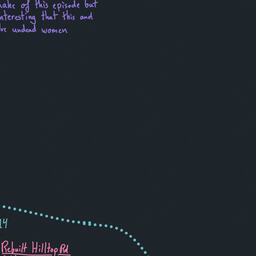 make of this episode but
interesting that this and
undead women
14
Rebuilt Hilltop Rd